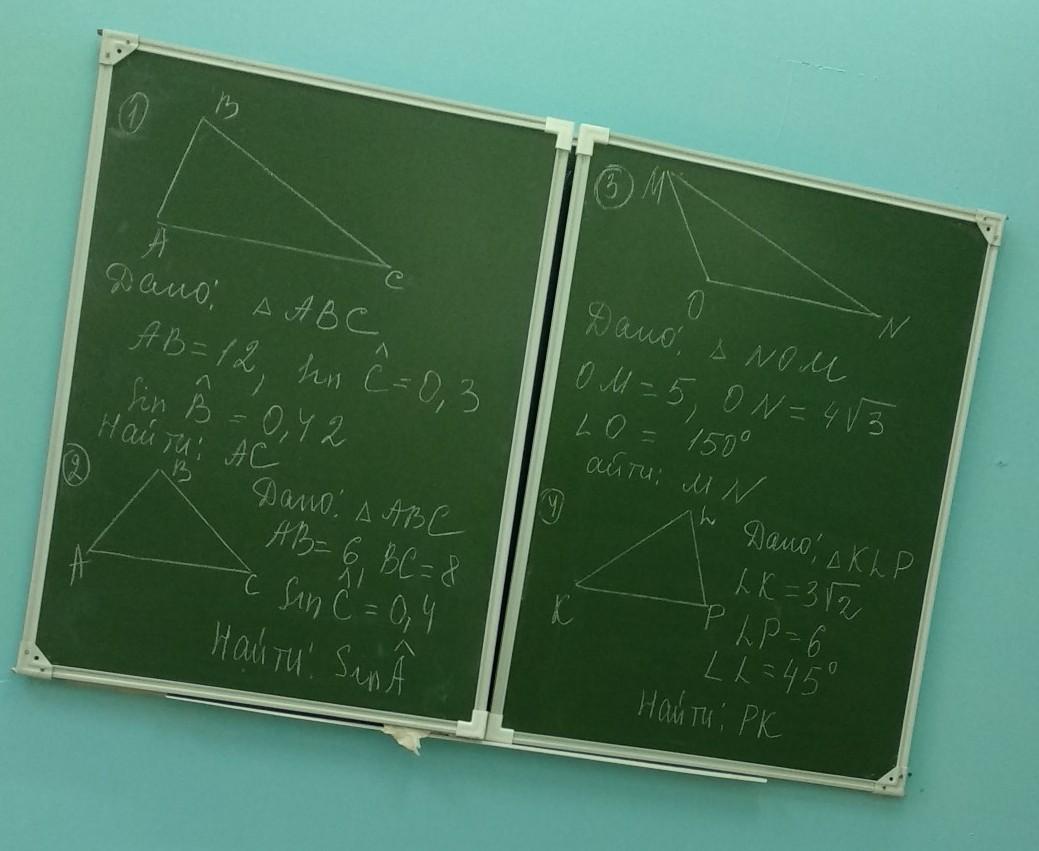 1
B
A
C
Дано: △ABC
AB=12, sin Ĉ=0,3
Sin B̂=0,42
Найти: AC
2
B
A
C
Дано: △ABC
AB=6, BC=8
Sin Ĉ=0,4
Найти: Sin Â
3
M
O
N
Дано: △NOM
OM=5, ON=4√3
∠O=150°
айти: MN
4
L
K
P
Дано: △KLP
LK=3√2
LP=6
∠L=45°
Найти: PK